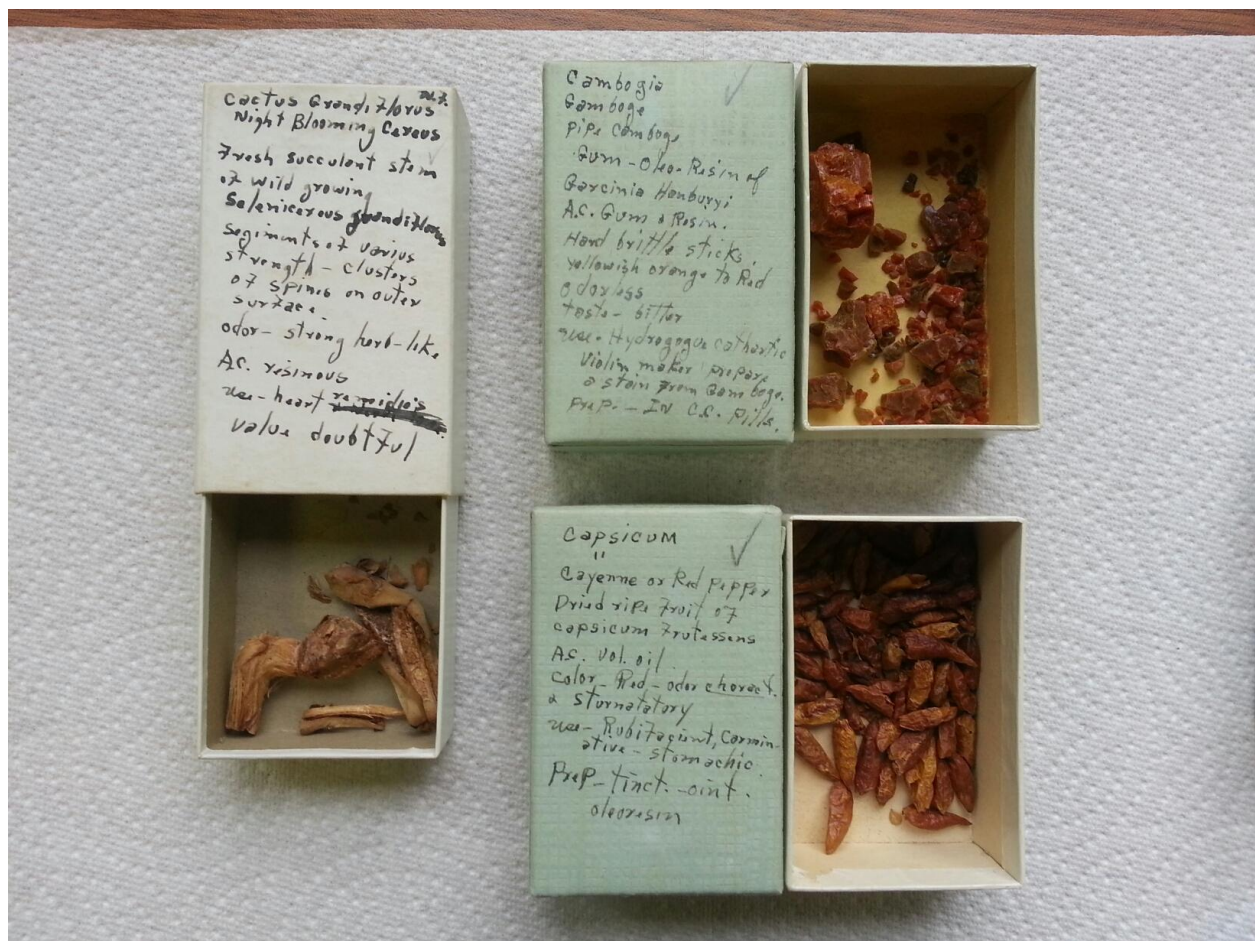 Cactus Grandiflorus N.F.
Night Blooming Cereus
Fresh succulent stem
of wild growing
Selenicereus grandiflorus
Segiments of varius
strength - clusters
of spines on outer
surface.
odor - strong herb-like
A.C. resinous
use - heart
value doubtful
Cambogia
Gamboge
Pipe Camboge
Gum-Oleo-Resin of
Garcinia Hanburyi
A.C. Gum & Resin.
Hard brittle sticks
yellowish orange to Red
odorless
taste - bitter
use - Hydragogue cathartic
Violin maker prepare
a stain from Gamboge.
Prep. - In C.C. Pills.
Capsicum
"
Cayenne or Red Pepper
Dried ripe fruit of
capsicum frutessens
A.C. vol. oil.
Color - Red - odor charact.
& sturnatatory
use - Rubifacient, Carmin-
ative - stomachic.
Prep - tinct. - oint.
oleoresin